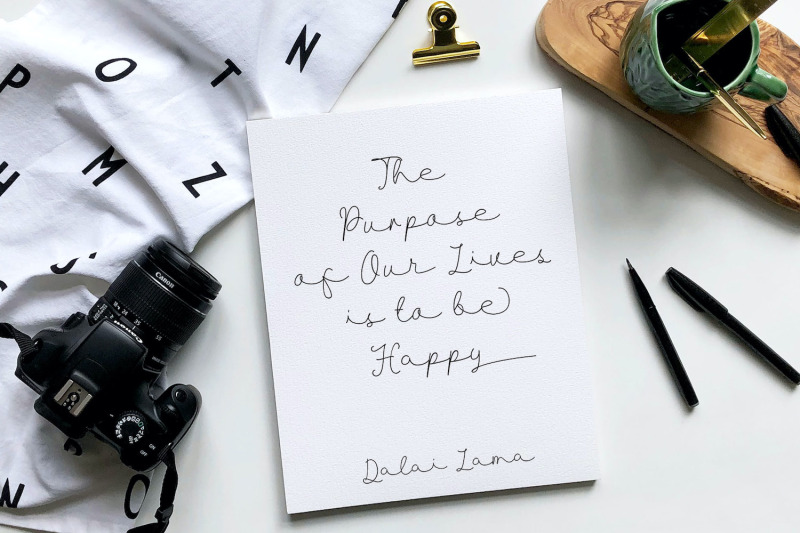 P O T N
H M Z
S
N O
Canon
Canon
The
Purpose
of Our Lives
is to be
Happy
Dalai Lama